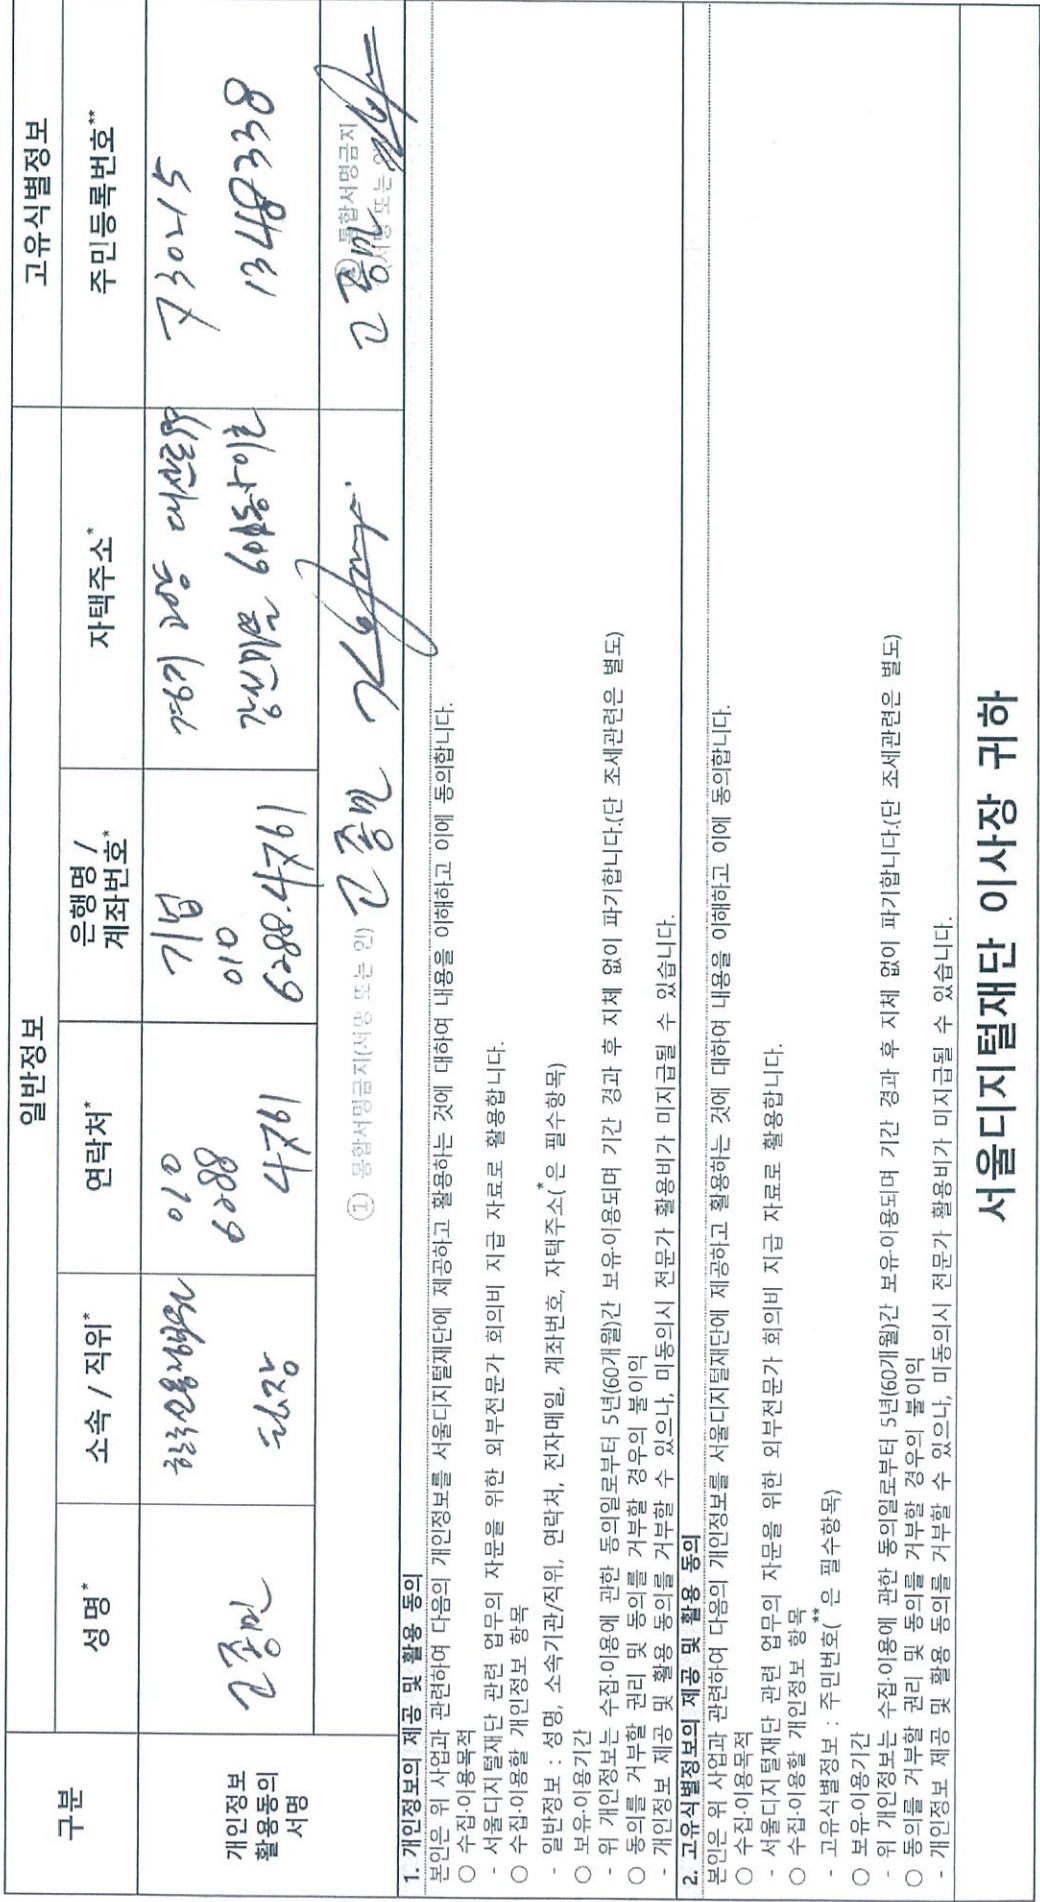 구분
일반정보
고유식별정보
성명*
소속 / 직위*
연락처*
은행명 /
계좌번호*
자택주소*
주민등록번호**
개인정보
활용동의
서명
고종민
팀장
010
6288
4761
기업
010
6288.4761
경기 고양
730215
1348338
① 통합서명금지(서명 또는 인)
고종민
② 통합서명금지
(서명 또는 인)
고종민
1. 개인정보의 제공 및 활용 동의
본인은 위 사업과 관련하여 다음의 개인정보를 서울디지털재단에 제공하고 활용하는 것에 대하여 내용을 이해하고 이에 동의합니다.
○ 수집·이용목적
- 서울디지털재단 관련 업무의 자문을 위한 외부전문가 회의비 지급 자료로 활용합니다.
○ 수집·이용할 개인정보 항목
- 일반정보 : 성명, 소속기관/직위, 연락처, 전자메일, 계좌번호, 자택주소(*은 필수항목)
○ 보유·이용기간
- 위 개인정보는 수집·이용에 관한 동의일로부터 5년(60개월)간 보유·이용되며 기간 경과 후 지체 없이 파기합니다.(단 조세관련은 별도)
○ 동의를 거부할 권리 및 동의를 거부할 경우의 불이익
- 개인정보 제공 및 활용 동의를 거부할 수 있으나, 미동의시 전문가 활용비가 미지급될 수 있습니다.
2. 고유식별정보의 제공 및 활용 동의
본인은 위 사업과 관련하여 다음의 개인정보를 서울디지털재단에 제공하고 활용하는 것에 대하여 내용을 이해하고 이에 동의합니다.
○ 수집·이용목적
- 서울디지털재단 관련 업무의 자문을 위한 외부전문가 회의비 지급 자료로 활용합니다.
○ 수집·이용할 개인정보 항목
- 고유식별정보 : 주민번호(**은 필수항목)
○ 보유·이용기간
- 위 개인정보는 수집·이용에 관한 동의일로부터 5년(60개월)간 보유·이용되며 기간 경과 후 지체 없이 파기합니다.(단 조세관련은 별도)
○ 동의를 거부할 권리 및 동의를 거부할 경우의 불이익
- 개인정보 제공 및 활용 동의를 거부할 수 있으나, 미동의시 전문가 활용비가 미지급될 수 있습니다.
서울디지털재단 이사장 귀하